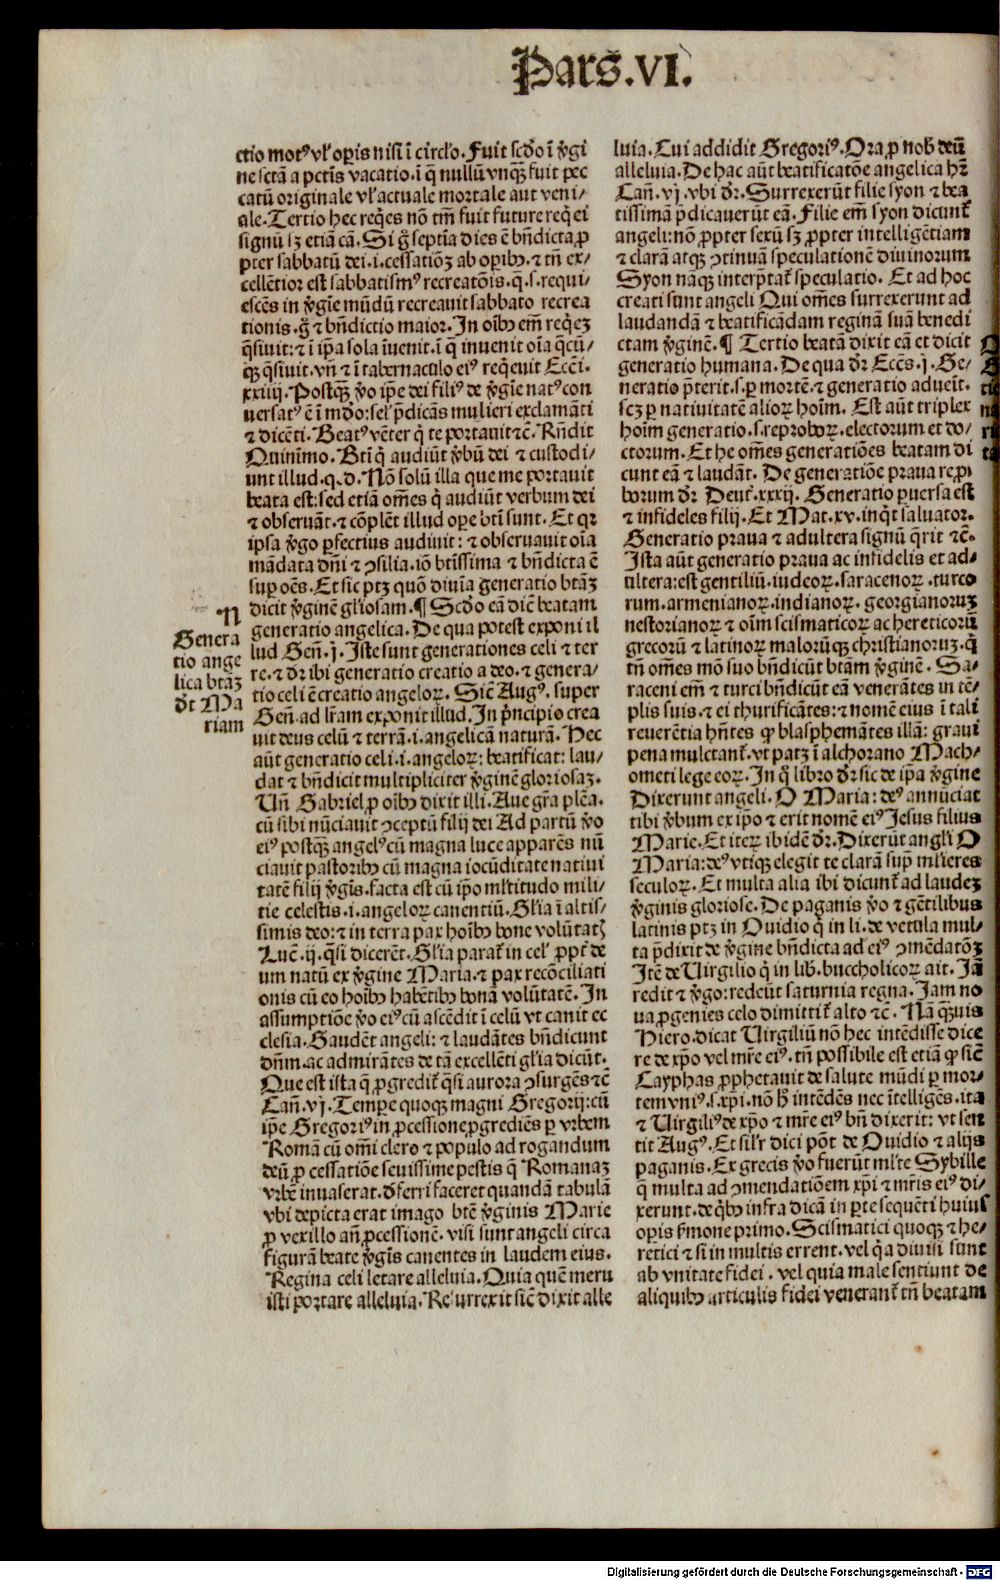 Pars.VI.
ctio motꝰ vl' oꝑis nisi ī circl'o. Fuit scd̄o ī v̓gi
ne sctā a pctīs vacatio. ī q̄ nullū vnqꝫ fuit pec
catū originale vl' actuale mortale aut veni/
ale. Tertio hec req̄es nō tm̄ fuit future req̄ei
signū sꝫ etiā cā. Si g̊ septīa dies ē bn̄dicta ꝓ
pter sabbatū dei .i. cessatiōꝫ ab oꝑibꝰ. ⁊ tn̄ ex/
cellētior est sabbatismꝰ recreatōis. q̄.s. requi/
escēs in v̓gīe mūdū recreauit sabbato recrea
tionis. g̊ ⁊ bn̄dictio maior. In oībꝰ em̄ req̄eꝫ
q̄siuit: ⁊ ī ip̄a sola īuenit. ī q̄ inuenit oīa q̄cū/
qꝫ q̄siuit. vn̄ ⁊ ī tabernaculo eiꝰ req̄euit Ecc̄i.
xxiiij. Postqꝫ v̓o ip̄e dei filiꝰ de v̓gīe natꝰ con
uersatꝰ ē ī mdo: sel' p̄dicās mulieri exclamāti
⁊ dicēti. Beatꝰ vēter q̄ te portauit ⁊c̄. Rn̄dit
Quinimo. Btī q̄ audiūt v̓bū dei ⁊ custodi/
unt illud. q.d. Nō solū illa que me portauit
beata est: sed etiā om̄es q̄ audiūt verbum dei
⁊ obseruāt. ⁊ cōplēt illud oꝑe btī sunt. Et qr
ipsa v̓go ꝑfectius audiuit: ⁊ obseruauit oīa
mādata dn̄i ⁊ ꝯsilia. iō btīssima ⁊ bn̄dicta ē
suꝑ oēs. Et sic ptꝫ quō diuīa generatio btāꝫ
dicit v̓ginē gl'iosam. ¶ Scd̄o eā diē beatam
generatio angelica. De qua potest exponi il
lud Gen̄. j. Iste sunt generationes celi ⁊ ter
re. ⁊ dr̄ ibi generatio creatio a deo. ⁊ genera/
tio celi ē creatio angeloꝝ. Sic̄ Augꝰ. super
Gen̄. ad lr̄am exponit illud. In p̄ncipio crea
uit deus celū ⁊ terrā .i. angelicā naturā. Hec
aūt generatio celi .i. angeloꝝ: beatificat: lau/
dat ⁊ bn̄dicit multipliciter v̓ginē gloriosaꝫ.
Un̄ Gabriel ꝓ oībꝰ dixit illi. Aue gr̄a plēa.
cū sibi nūciauit ꝯceptū filij dei Ad partū v̓o
eiꝰ postqꝫ angelꝰ cū magna luce apparēs nū
ciauit pastoribꝰ cū magna iocūditate natiui
tatē filij v̓gīs. facta est cū ip̄o ml'titudo mili/
tie celestis .i. angeloꝝ canentiū. Gl'ia ī altis/
simis deo: ⁊ in terra pax hoībꝰ bone volūtatꝭ
Luc̄. ij. q̄si dicerēt. Gl'ia parat̄ in cel' ꝓpt̄ de
um natū ex v̓gine Maria. ⁊ pax recōciliati
onis cū eo hoībꝰ habētibꝰ bonā volūtatē. In
assumptiōe v̓o eiꝰ cū ascēdit ī celū vt canit ec
clesia. Gaudēt angeli: ⁊ laudātes bn̄dicunt
dn̄m. ac admirātes de tā excellēti gl'ia dicūt.
Que est ista q̄ ꝓgredit̄ q̄si aurora ꝯsurgēs ⁊c̄
Can̄. vj. Tempe quoqꝫ magni Gregorij: cū
ip̄e Gregoriꝰ in ꝓcessione ꝓgrediēs ꝑ vrbem
Romā cū om̄i clero ⁊ populo ad rogandum
deū ꝓ cessatiōe seuissime pestis q̄ Romanaꝫ
vrbē inuaserat. d̄ferri faceret quandā tabulā
vbi depicta erat imago btē v̓ginis Marie
ꝓ vexillo an̄ ꝓcessionē. visi sunt angeli circa
figurā beate v̓gīs canentes in laudem eius.
Regina celi letare alleluia. Quia quē meru
isti portare alleluia. Resurrexit sic̄ dixit alle
N
Genera
tio ange
lica btāꝫ
dt̄ Ma
riam
luia. Cui addidit Gregoriꝰ. Ora ꝓ nob' deū
alleluia. De hac aūt beatificatōe angelica hr̄
Can̄. vj. vbi dr̄. Surrexerūt filie syon ⁊ bea
tissimā p̄dicauerūt eā. Filie em̄ syon dicunt̄
angeli: nō ꝓpter sexū sꝫ ꝓpter intelligētiam
⁊ clarā atqꝫ ꝯtinuā speculationē diuinorum
Syon nāqꝫ interp̄tat̄ speculatio. Et ad hoc
creati sunt angeli Qui om̄es surrexerunt ad
laudandā ⁊ beatificādam reginā suā benedi
ctam v̓ginē. ¶ Tertio beatā dixit eā et dicit
generatio humana. De qua dr̄ Ecc̄s. j. Ge/
neratio p̄terit. s. ꝑ mortē. ⁊ generatio adueīt.
scꝫ ꝑ natiuitatē alioꝝ hoīm. Est aūt triplex
hoīm generatio. s. reproboꝝ. electorum et do/
ctorum. Et he om̄es generatiōes beatam di
cunt eā ⁊ laudāt. De generatiōe praua repro
borum dr̄ Deut̄. xxxij. Generatio ꝑuersa est
⁊ infideles filij. Et Mat. xv. inq̄t saluator.
Generatio praua ⁊ adultera signū q̄rit ⁊c̄.
Ista aūt generatio praua ac infidelis et ad/
ultera: est gentiliū. iudeoꝝ. saracenoꝝ. turco
rum. armenianoꝝ. indianoꝝ. georgianoruꝫ
nestorianoꝝ ⁊ oīm scismaticoꝝ ac hereticorū
grecorū ⁊ latinoꝝ malorūqꝫ christianoruꝫ. q̄
tn̄ om̄es mō suo bn̄dicūt btām v̓ginē. Sa/
raceni em̄ ⁊ turci bn̄dicūt eā venerātes in tē/
plis suis. ⁊ ei thurificātes: ⁊ nomē eius ī tali
reuerētia hn̄tes ꝙ blasphemātes illā: graui
pena mulctant̄. vt patꝫ ī alchorano Mach/
ometi lege eoꝝ. In q̊ libro dr̄ sic de ip̄a v̓gine
Dixerunt angeli. O Maria: deꝰ annūciat
tibi v̓bum ex ip̄o ⁊ erit nomē eiꝰ Jesus filius
Marie. Et iteꝝ ibidē dr̄. Dixerūt angl'i O
Maria: deꝰ vtiqꝫ elegit te clarā suꝑ ml'ieres
seculoꝝ. Et multa alia ibi dicunt̄ ad laudeꝫ
v̓ginis gloriose. De paganis v̓o ⁊ gētilibus
latinis ptꝫ in Ouidio q̄ in li. de vetula mul/
ta p̄dixit de v̓gine bn̄dicta ad eiꝰ ꝯmēdatōꝫ
Itē de Uirgilio q̄ in lib. buccholicoꝝ ait. Jā
redit ⁊ v̓go: redeūt saturnia regna. Jam no
ua ꝓgenies celo dimittit̄ alto ⁊c̄. Nā q̄uis
Hiero. dicat Uirgiliū nō hec intēdisse dice
re de xp̄o vel mr̄e eiꝰ. tn̄ possibile est etiā ꝙ sic̄
Cayphas ꝓphetauit de salute mūdi ꝑ mor/
tem vniꝰ. s. xp̄i. nō h̄ intēdēs nec ītelligēs. ita
⁊ Uirgiliꝰ de xp̄o ⁊ mr̄e eiꝰ bn̄ dixerit: vt sen
tit Augꝰ. Et sil'r dici pōt de Ouidio ⁊ alijs
paganis. Ex grecis v̓o fuerūt ml'te Sybille
q̄ multa ad ꝯmendatiōem xp̄i ⁊ mr̄is eiꝰ di/
xerunt. de q̄bꝰ infra dicā in ꝑte sequēti huius
oꝑis s̓mone primo. Scismatici quoqꝫ ⁊ he/
retici ⁊ si in multis errent. vel q̄a diuisi sunt
ab vnitate fidei. vel quia male sentiunt de
aliquibꝰ articulis fidei venerant̄ tn̄ beatam
Digitalisierung gefördert durch die Deutsche Forschungsgemeinschaft - DFG